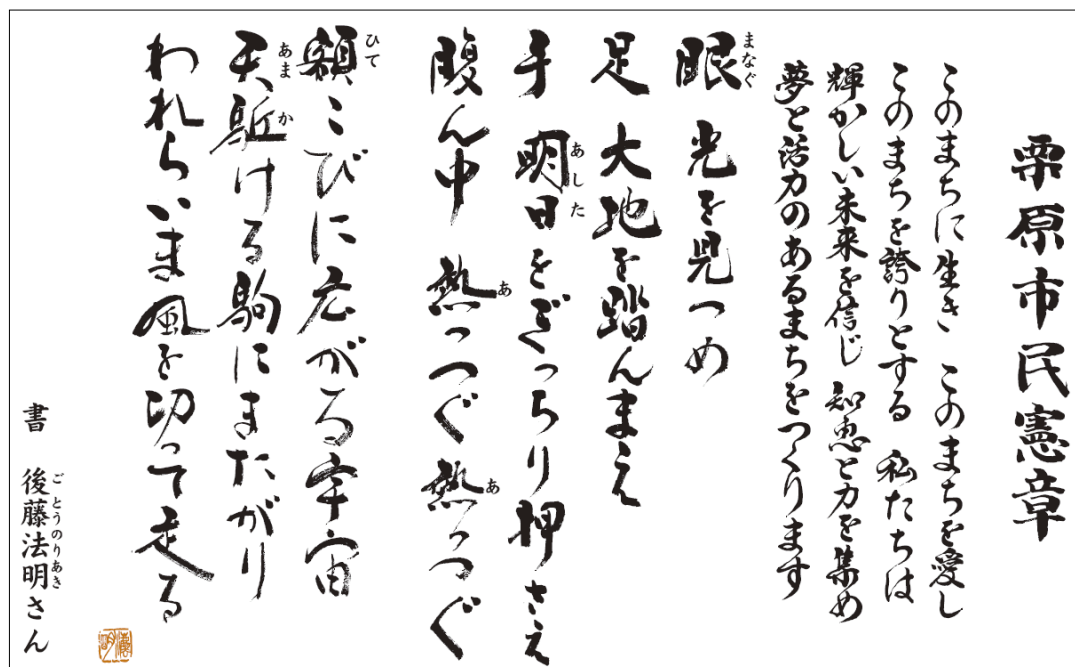 栗原市民憲章
このまちに生き このまちを愛し
このまちを誇りとする 私たちは
輝かしい未来を信じ 知恵と力を集め
夢と活力のあるまちをつくります
眼 光を見つめ
まなぐ
足 大地を踏んまえ
手 明日をぎっちり押さえ
あした
腹ん中 熱っつぐ熱っつぐ
あ あ
額こびに広がる宇宙
ひて
天駈ける駒にまたがり
あま か
われらいま風を切って走る
書 後藤法明さん
ごとうのりあき